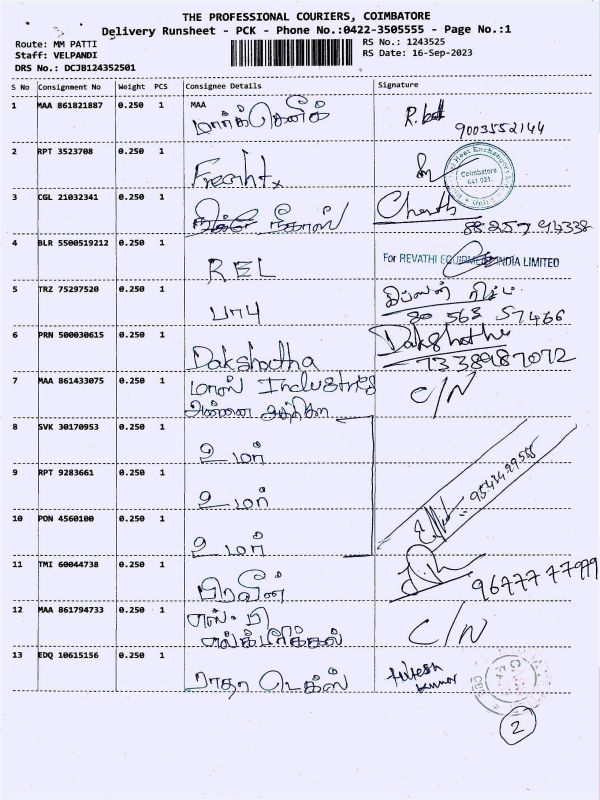 THE PROFESSIONAL COURIERS, COIMBATORE
Delivery Runsheet - PCK - Phone No.:0422-3505555 - Page No.:1
Route: MM PATTI
Staff: VELPANDI
DRS No.: DCJB124352501
RS No.: 1243525
RS Date: 16-Sep-2023
S No Consignment No Weight PCS Consignee Details Signature
1 MAA 861821887 0.250 1 MAA
9003552144
2 RPT 3523708 0.250 1
Coimbatore
641 021
3 CGL 21032341 0.250 1
4 BLR 5500519212 0.250 1 REL For REVATHI EQUIPMENT INDIA LIMITED
5 TRZ 75297520 0.250 1 பாபு
80 563 57466
6 PRN 500030615 0.250 1 Dakshatha Dakshatha
7338987072
7 MAA 861433075 0.250 1 மாரஸ் Industries C/N
8 SVK 30170953 0.250 1 உமர்
9 RPT 9283661 0.250 1 உமர்
10 PON 4560100 0.250 1 உமர்
11 TMI 60044738 0.250 1 பிரவீன் 96777 77979
12 MAA 861794733 0.250 1 எஸ். பி C/N
13 EDQ 10615156 0.250 1 ராதா டெக்ஸ் Hitesh
kumar
2